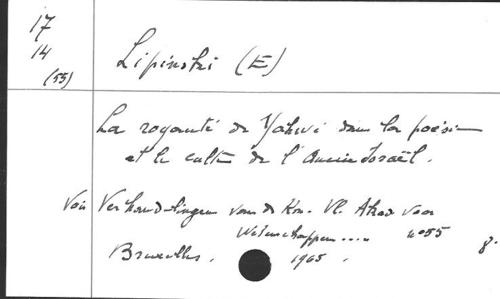 17
14
(55)
Lipinski (E)
La royauté de Yahwé dans la poésie
et le culte de l'Ancien Israël.
Voir Verhandelingen van de Kon. Vl. Acad. voor
Wetenschappen .... n° 55
Bruxelles. 1965. 8°